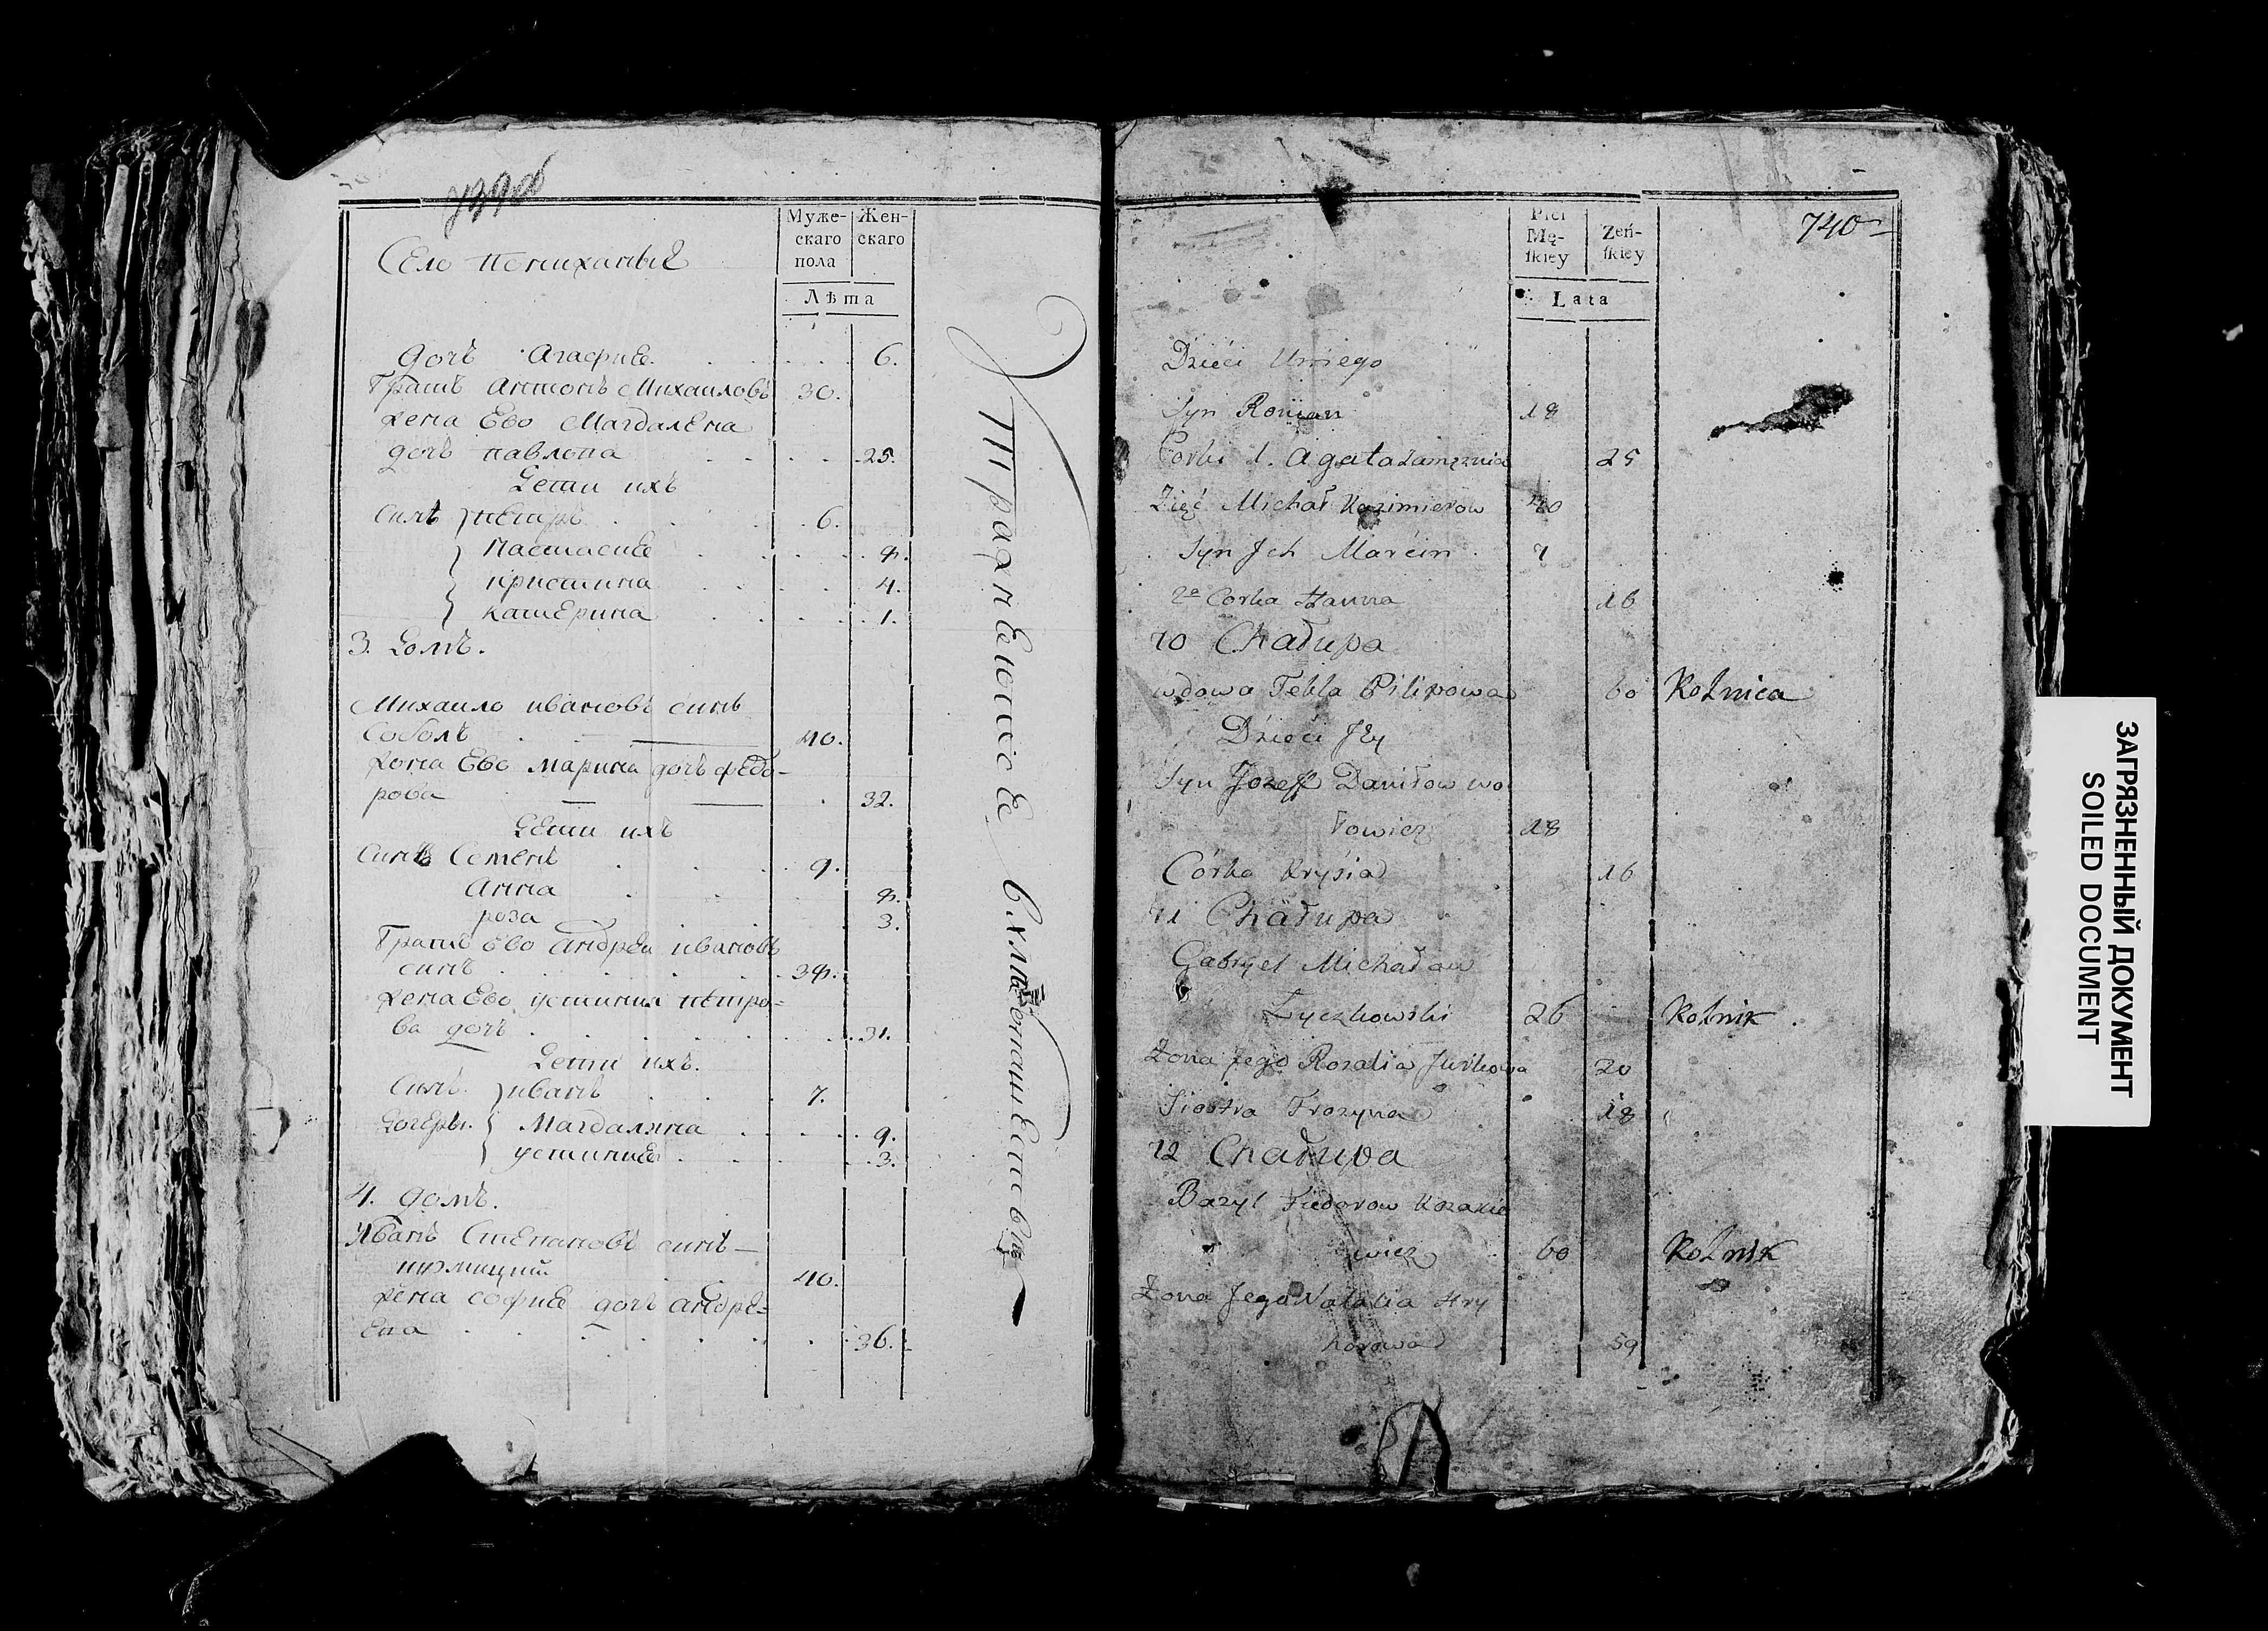 739об
Муже-
скаго
пола
Жен-
скаго
Лѣта
Село
дочъ Агафиѣ 6.
братъ Антонъ Михаиловъ 30.
жена Ево Магдалена
дочъ павлова 25.
Дети ихъ
синъ пЕтръ 6.
Настасиѣ 8.
кристина 4.
катЕрина 1.
3. Домъ.
Михаило ивановъ синъ
Соболъ 40.
жона Ево марина дочъ фЕдо-
рова 32.
ДЕти ихъ
синъ Семенъ 9.
Анна 8.
роза 3.
братъ Ево андрЕи ивановъ
синъ 38.
жена Ево устиния пЕтро-
ва дочъ 31.
Дети ихъ.
Синъ иванъ 7.
ДочЕры Магдалина 9.
устиниѣ 3.
4. домъ.
Иванъ СтЕпановъ синъ
40.
жена софиѣ дочъ андрЕ-
Ева 36.
740
Płci
Mę-
skiey
Żeń-
skiey
Lata
Dzieci Uniego
Syn Roman 18
Corki 1. Agata zamężnia 25
Zięć Michał Kazimierow 40
Syn Jch Marcin 7
2a Corka Hanna 16
10 Chałupa
wdowa Tekla Pilipowa 60 Rolnica
Dzieci Jey
Syn Jozeff Daniłow wo
łowicz 18
Córka Krysia 16
11 Chałupa
Gabryel Michałow
Łyczkowski 26 Rolnik
Żona Jego Rozalia Jurkowa 20
Siostra Frozyna 18
12 Chałupa
Bazyl Fiedorow Kozakie
wicz 60 Rolnik
Żona Jego Natalia Hry
horowa 59
ЗАГРЯЗНЕННЫЙ ДОКУМЕНТ
SOILED DOCUMENT